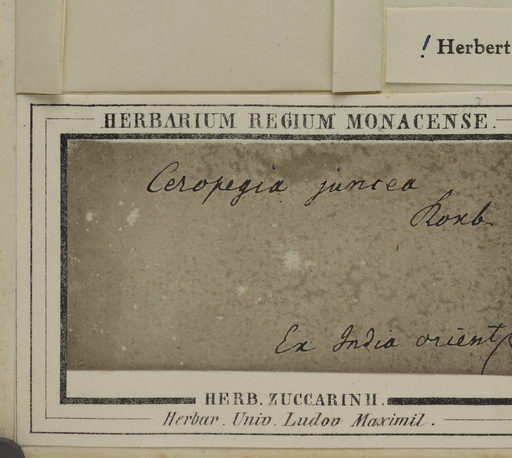 ! Herbert
HERBARIUM REGIUM MONACENSE.
Ceropegia juncea
Roxb.
Ex India orient
HERB. ZUCCARINII.
Herbar. Univ. Ludov Maximil.